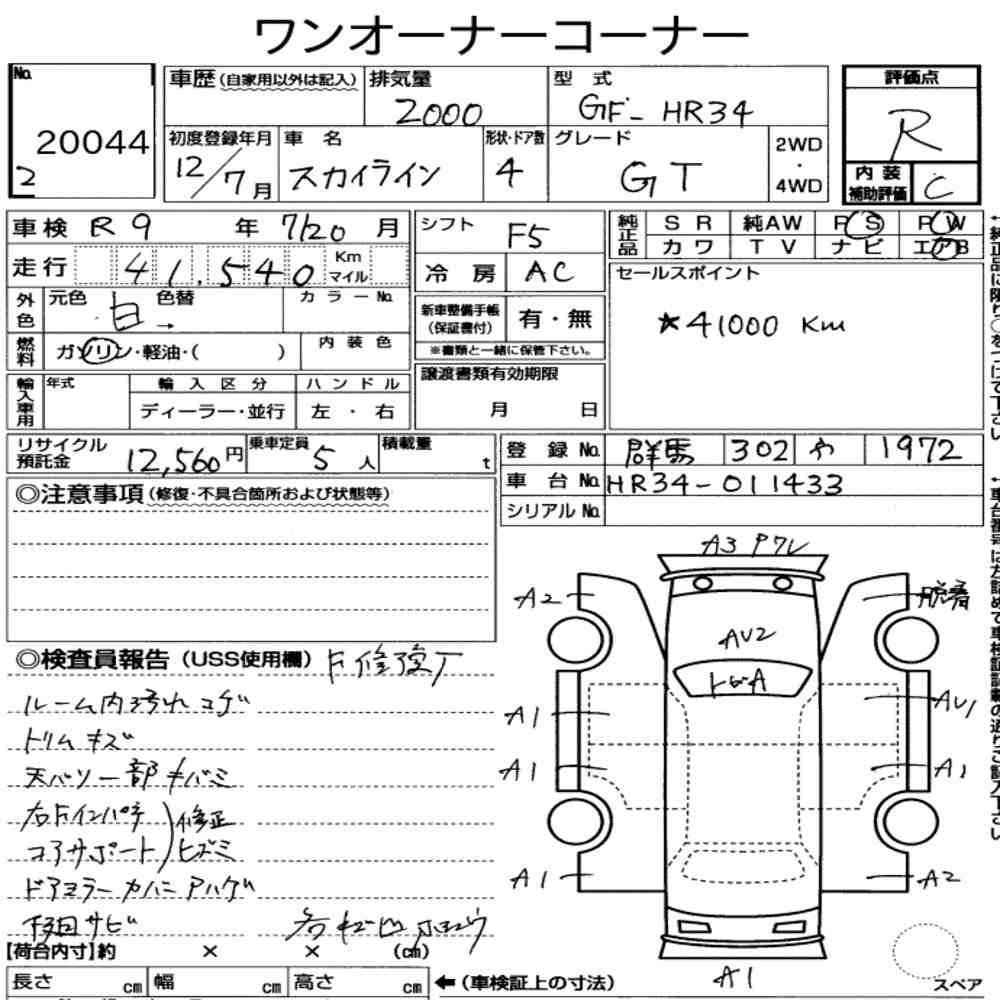 ワンオーナーコーナー
No. 20044
2
車歴 (自家用以外は記入)
排気量 2000
型式 GF-HR34
評価点 R
内装補助評価 C
初度登録年月 12/7月
車名 スカイライン
形状・ドア数 4
グレード GT
2WD・4WD
車検 R9年 7/20月
走行 41,540 Km マイル
外色 元色 白 色替 →
カラーNo.
燃料 ガソリン・軽油・( )
内装色
輸入車用 年式
輸入区分 ディーラー・並行
ハンドル 左・右
シフト F5
冷房 AC
新車整備手帳(保証書付) 有・無
※書類と一緒に保管下さい。
譲渡書類有効期限
月 日
純正品 SR 純AW PS PW
カワ TV ナビ エアB
セールスポイント
★41000 Km
リサイクル預託金 12,560円
乗車定員 5人
積載量 t
登録No. 群馬 302 や 1972
車台No. HR34-011433
シリアルNo.
◎注意事項(修復・不具合箇所および状態等)
◎検査員報告(USS使用欄)
ルーム内汚れ コゲ
トリムキズ
右Fインパネ
コアサポート
修正
ヒズミ
ドアミラーカバーアハゲ
下回サビ
A3
A2
脱着
AV2
A1
AV1
A1
A1
A1
A2
A1
スペア
【荷台内寸】約 × × (cm)
長さ cm 幅 cm 高さ cm
←(車検証上の寸法)